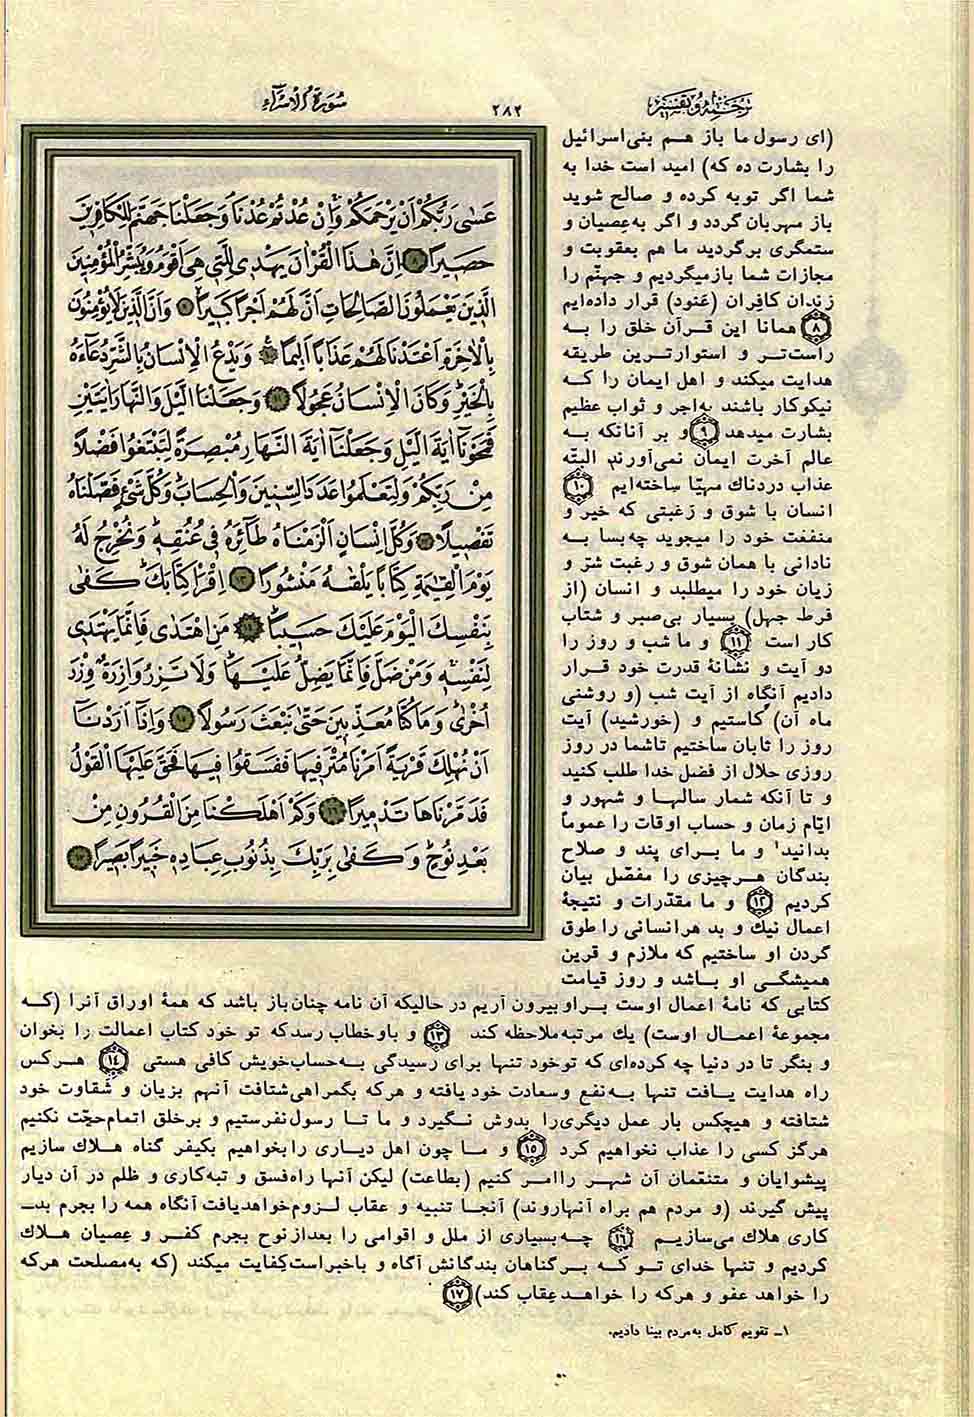 ترجمه و تفسیر
۲۸۲
سُورَةُ الْاِسْرَآء
(ای رسول ما باز هـم بنی‌اسرائیل
را بشارت ده که) امید است خدا به
شما اگر توبه کرده و صالح شوید
باز مهربان گردد و اگر به‌عِصیان و
ستمگری برگردید ما هم بعقوبت و
مجازات شما بازمیگردیم و جهنّم را
زندان کافِران (عَنود) قرار داده‌ایم
۸ همانا این قـرآن خلق را بـه
راست‌تـر و استوارتـرین طریقه
هدایت میکند و اهل ایمان را کـه
نیکوکار باشند به‌اجر و ثواب عظیم
بشارت میدهد ۹ و بر آنانکه بـه
عالم آخرت ایمان نمی‌آورند البتّه
عذاب دردناك مهیّا ساخته‌ایم ۱۰
انسان با شوق و رَغبتی که خیر و
منفعت خود را میجوید چه‌بسا بـه
نادانی با همان شوق و رغبت شرّ و
زیان خود را میطلبد و انسان (از
فرط جهل) بسیار بی‌صبر و شتاب
کار است ۱۱ و ما شب و روز را
دو آیت و نشانهٔ قدرت خود قـرار
دادیم آنگاه از آیت شب (و روشنی
ماه آن) کاستیم و (خورشید) آیت
روز را تابان ساختیم تاشما در روز
روزی حلال از فضل خدا طلب کنید
و تا آنکه شمار سالهـا و شهور و
ایّام زمان و حساب اوقات را عموماً
بدانید۱ و ما بـرای پند و صلاح
بندگان هـرچیزی را مفصّل بیان
کردیم ۱۲ و ما مقدّرات و نتیجهٔ
اعمال نیك و بد هرانسانی را طوق
گردن او ساختیم که ملازم و قرین
همیشگـی او بـاشد و روز قیامت
کتابی که نامهٔ اعمال اوست بـراو بیرون آریم در حالیکه آن نامه چنان باز باشد که همهٔ اوراق آنرا (کـه
مجموعهٔ اعمـال اوست) یك مرتبه ملاحظه کند ۱۳ و باو خطاب رسد که تو خود کتاب اعمالت را بخوان
و بنگر تا در دنیا چه کرده‌ای که توخود تنها برای رسیدگی بـه‌حساب خویش کافی هستی ۱۴ هـرکس
راه هدایت یـافت تنهـا بـه‌نفع وسعادت خود یافته و هرکه بگمراهی‌شتافت آنهم بزیان و شَقاوت خود
شتافته و هیچکس بار عمل دیگری‌را بدوش نـگیرد و ما تـا رسول نفرستیم و برخلق اتمام‌حجّت نکنیم
هرگز کسی را عذاب نخواهیم کرد ۱۵ و مـا چون اهل دیـاری را بخواهیم بکیفر گناه هـلاك سازیم
پیشوایان و متنعّمان آن شهـر راامـر کنیم (بطاعت) لیکن آنها راه‌فسق و تبه‌کاری و ظلم در آن دیار
پیش گیرند (و مردم هم براه آنهاروند) آنجـا تنبیه و عقاب لـزوم خواهدیافت آنگاه همه را بجرم بدـ
کاری هلاك می‌سازیـم ۱۶ چـه بسیاری از ملل و اقوامی را بعدازنوح بجرم کفـر و عِصیان هـلاك
کردیم و تنهـا خدای تـو کـه بـرگناهان بندگانش آگاه و باخبراست کِفایت میکند (که به‌مصلحت هرکه
را خواهد عفو و هرکه را خواهـد عِقاب کند) ۱۷
۱ـ تقویم کامل به‌مردم بینا دادیم.
عَسٰى رَبُّكُمْ اَنْ يَرْحَمَكُمْ وَاِنْ عُدْتُمْ عُدْنَا وَجَعَلْنَا جَهَنَّمَ لِلْكَافِرِينَ
حَصِيرًا ۸ اِنَّ هٰذَا الْقُرْاٰنَ يَهْدِى لِلَّتِى هِىَ اَقْوَمُ وَيُبَشِّرُ الْمُؤْمِنِينَ
الَّذِينَ يَعْمَلُونَ الصَّالِحَاتِ اَنَّ لَهُمْ اَجْرًا كَبِيرًا ۹ وَاَنَّ الَّذِينَ لَايُؤْمِنُونَ
بِالْاٰخِرَةِ اَعْتَدْنَا لَهُمْ عَذَابًا اَلِيمًا ۱۰ وَيَدْعُ الْاِنْسَانُ بِالشَّرِّ دُعَاءَهُ
بِالْخَيْرِ وَكَانَ الْاِنْسَانُ عَجُولًا ۱۱ وَجَعَلْنَا الَّيْلَ وَالنَّهَارَ اٰيَتَيْنِ
فَمَحَوْنَا اٰيَةَ الَّيْلِ وَجَعَلْنَا اٰيَةَ النَّهَارِ مُبْصِرَةً لِتَبْتَغُوا فَضْلًا
مِنْ رَبِّكُمْ وَلِتَعْلَمُوا عَدَدَ السِّنِينَ وَالْحِسَابَ وَكُلَّ شَىْءٍ فَصَّلْنَاهُ
تَفْصِيلًا ۱۲ وَكُلَّ اِنْسَانٍ اَلْزَمْنَاهُ طَائِرَهُ فِى عُنُقِهِ وَنُخْرِجُ لَهُ
يَوْمَ الْقِيٰمَةِ كِتَابًا يَلْقٰيهُ مَنْشُورًا ۱۳ اِقْرَأْ كِتَابَكَ كَفٰى
بِنَفْسِكَ الْيَوْمَ عَلَيْكَ حَسِيبًا ۱۴ مَنِ اهْتَدٰى فَاِنَّمَا يَهْتَدِى
لِنَفْسِهِ وَمَنْ ضَلَّ فَاِنَّمَا يَضِلُّ عَلَيْهَا وَلَا تَزِرُ وَازِرَةٌ وِزْرَ
اُخْرٰى وَمَا كُنَّا مُعَذِّبِينَ حَتّٰى نَبْعَثَ رَسُولًا ۱۵ وَاِذَا اَرَدْنَا
اَنْ نُهْلِكَ قَرْيَةً اَمَرْنَا مُتْرَفِيهَا فَفَسَقُوا فِيهَا فَحَقَّ عَلَيْهَا الْقَوْلُ
فَدَمَّرْنَاهَا تَدْمِيرًا ۱۶ وَكَمْ اَهْلَكْنَا مِنَ الْقُرُونِ مِنْ
بَعْدِ نُوحٍ وَكَفٰى بِرَبِّكَ بِذُنُوبِ عِبَادِهِ خَبِيرًا بَصِيرًا ۱۷